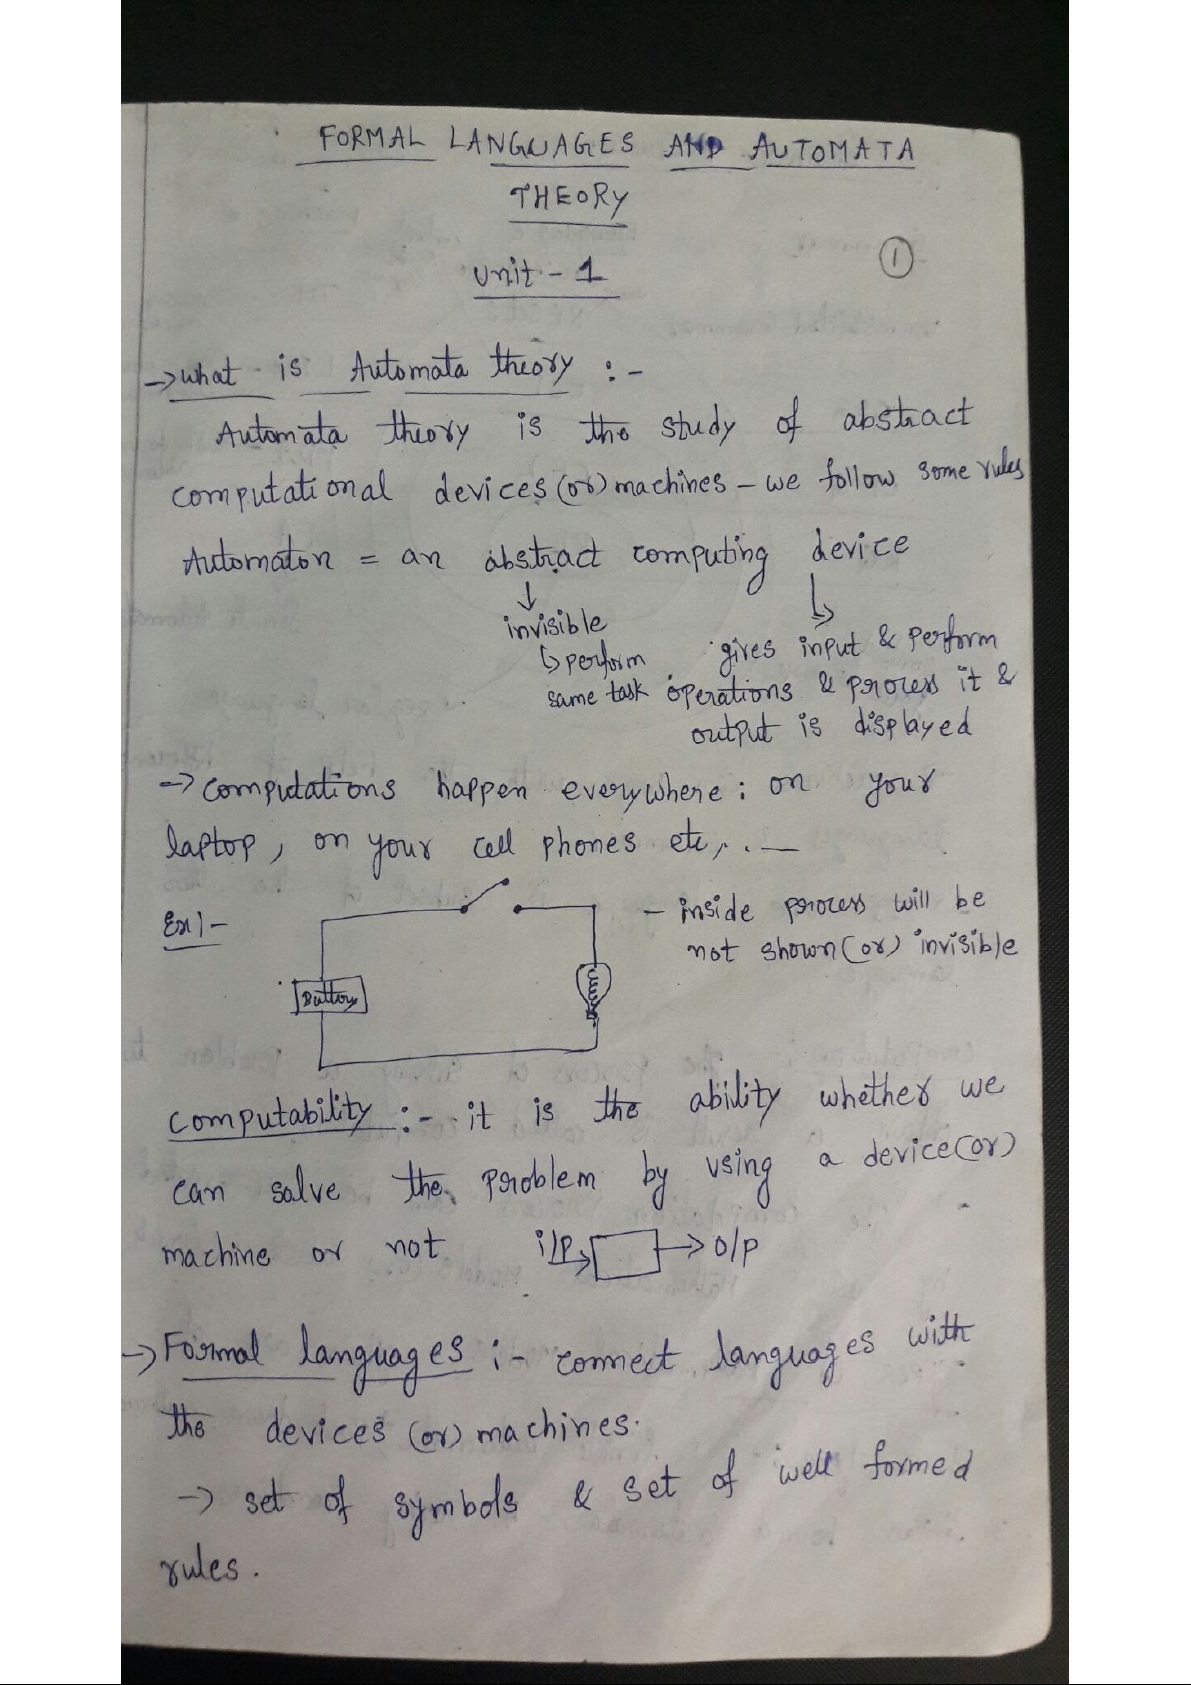 FORMAL LANGUAGES AND AUTOMATA
THEORY
Unit - 1
1
→ what is Automata theory :-
Automata theory is the study of abstract
computational devices (or) machines - we follow some rules
Automaton = an abstract computing device
↓
invisible
↳ perform
same task
↳
gives input & perform
operations & process it &
output is displayed
→ computations happen everywhere : on your
laptop, on your cell phones etc, . —
Ex1-
Battery
- inside process will be
not shown (or) invisible
computability :- it is the ability whether we
can solve the problem by using a device (or)
machine or not i/p → → o/p
→ Formal languages :- connect languages with
the devices (or) machines.
→ set of symbols & set of well formed
rules.